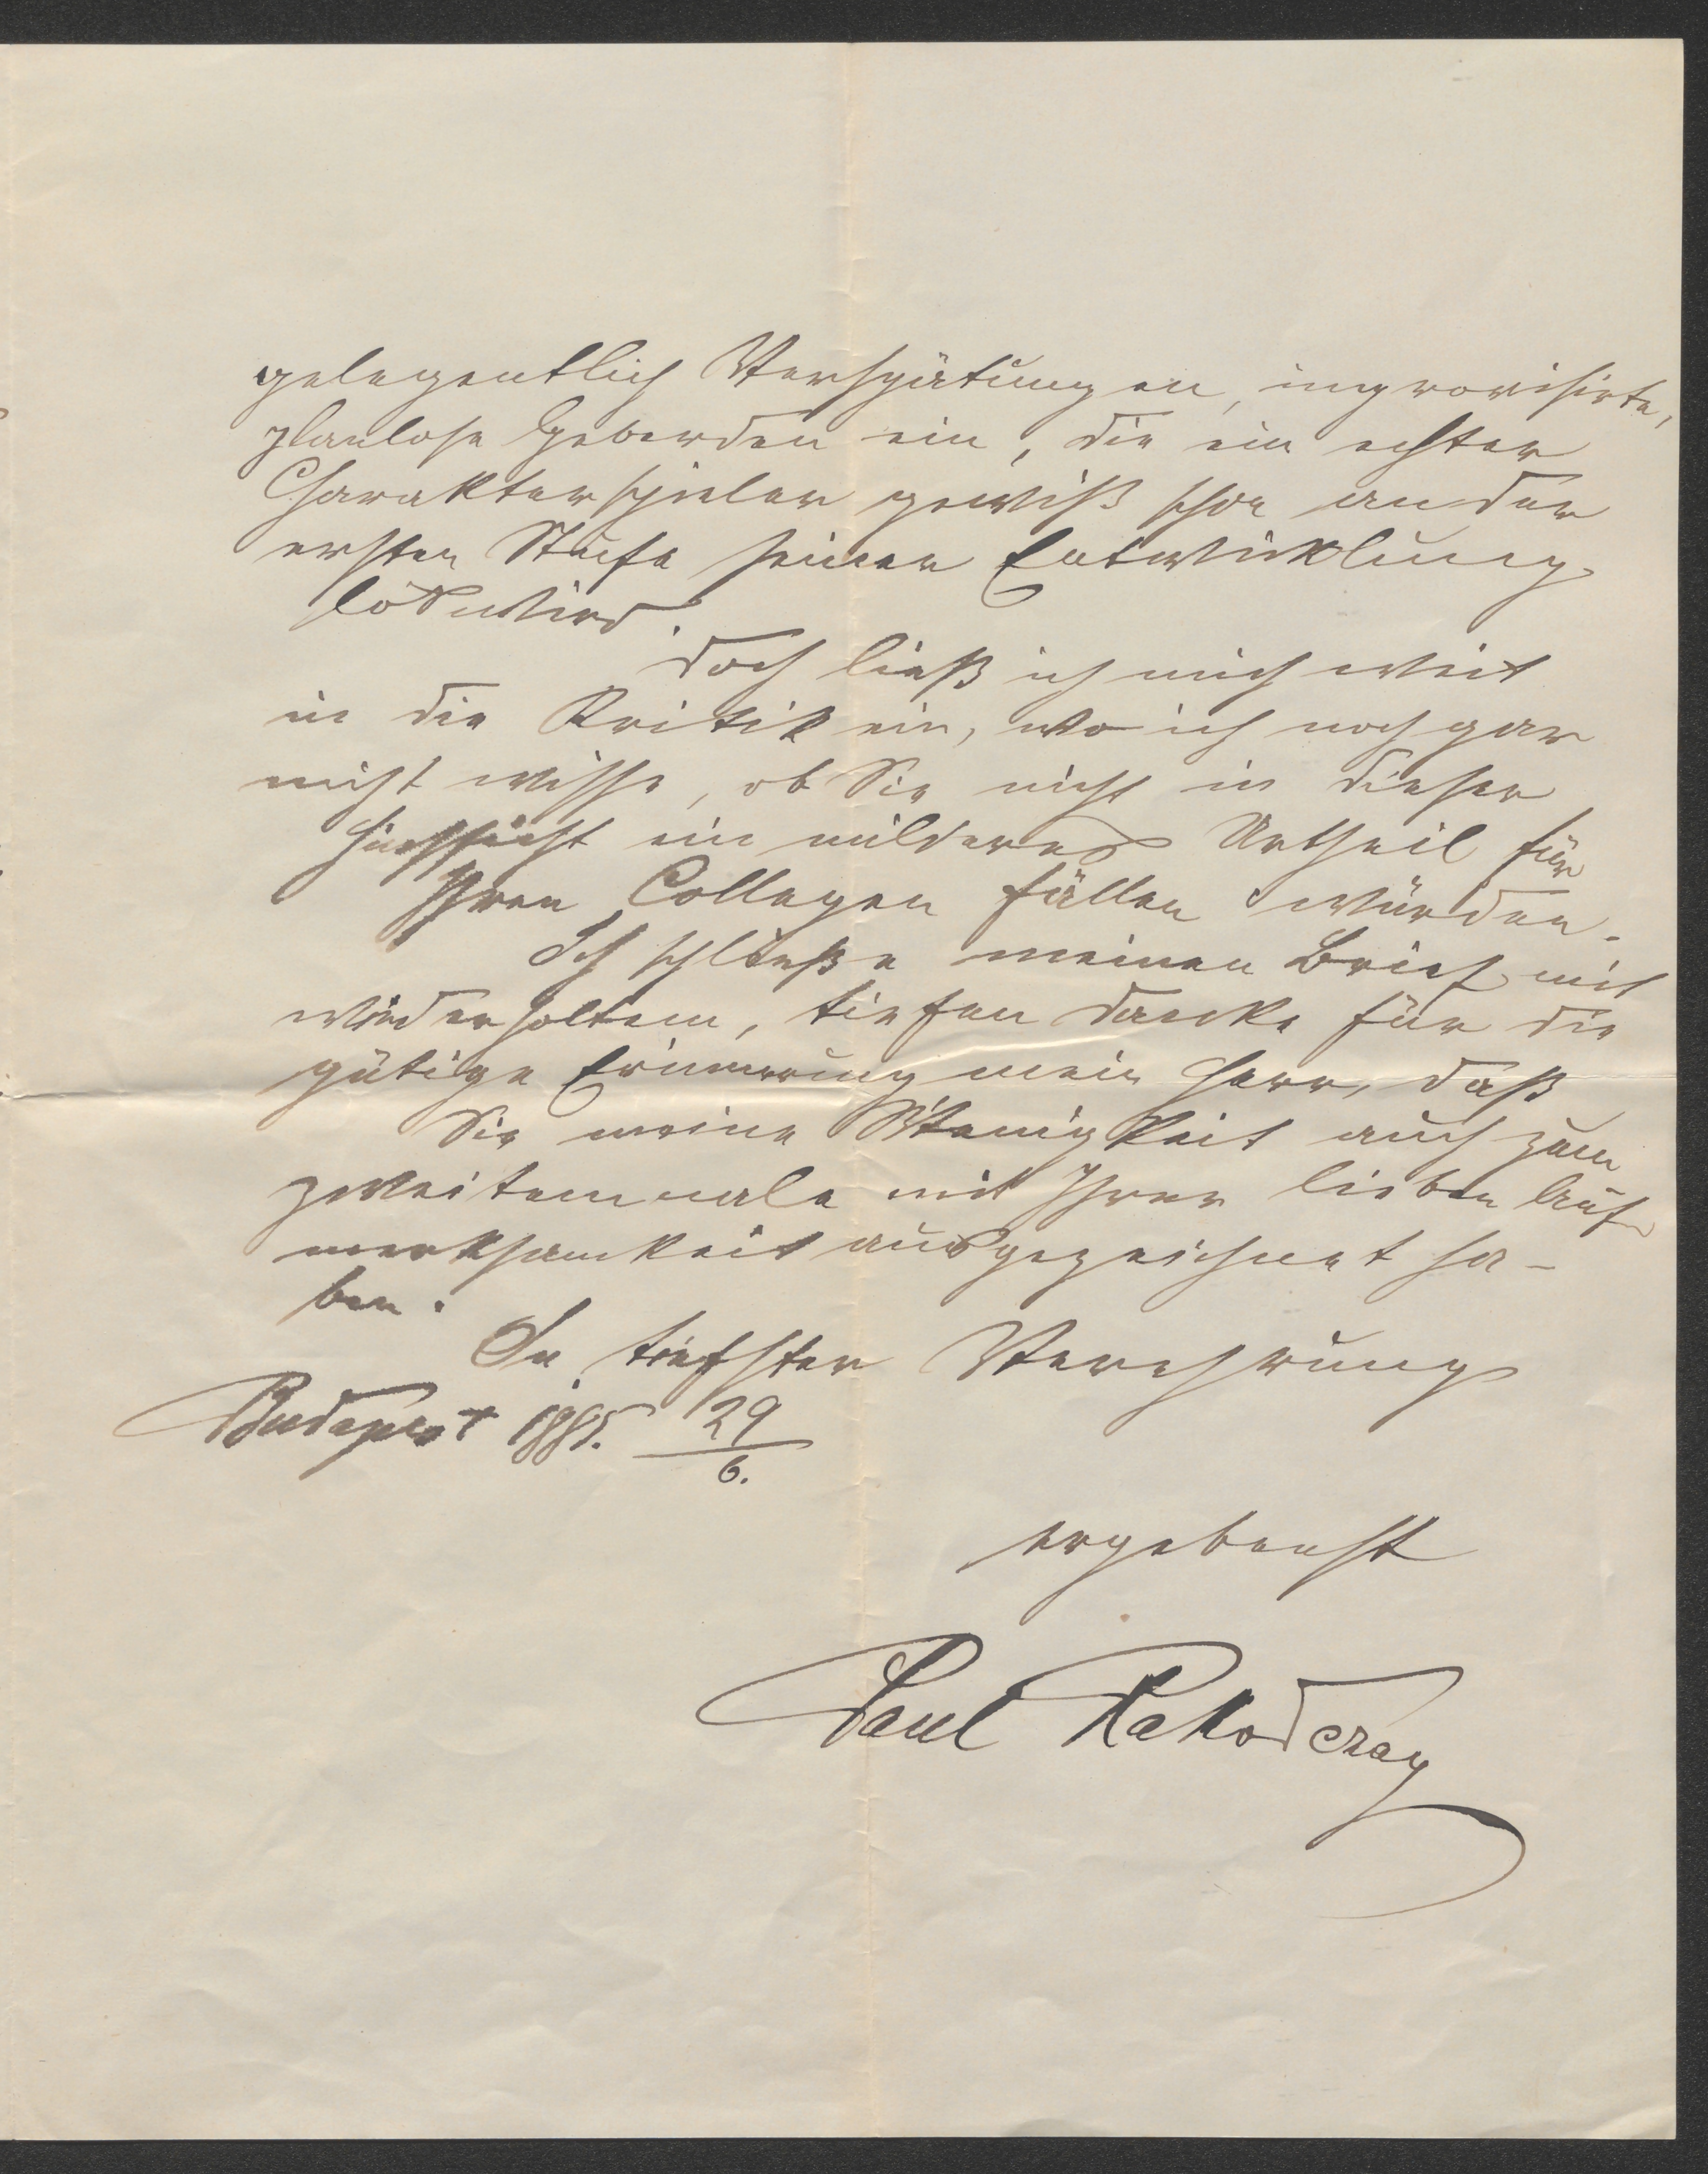 gelegentlich Verspätungen, improvisirte,
planlose Geberden ein, die ein echter
Charakterspieler gewiß schon an der
ersten Stufe seiner Entwicklung
los wird.
Doch ließ ich mich weit
in die Kritik ein, wo ich noch gar
nicht wisse, ob Sie nicht in dieser
Hinsicht ein milderes Urtheil für
Ihren Collegen fällen würden.
Ich schließe meinen Brief mit
wiederholtem, tiefen Danke für die
gütige Erinnerung mein Herr, daß
Sie meine Wenigkeit auch zum
zweitenmale mit Ihrer lieben Auf
merksamkeit ausgezeichnet ha-
ben.
In tiefster Verehrung
Budapest 1885. 29/6.
ergebenst
Paul Rakodczay